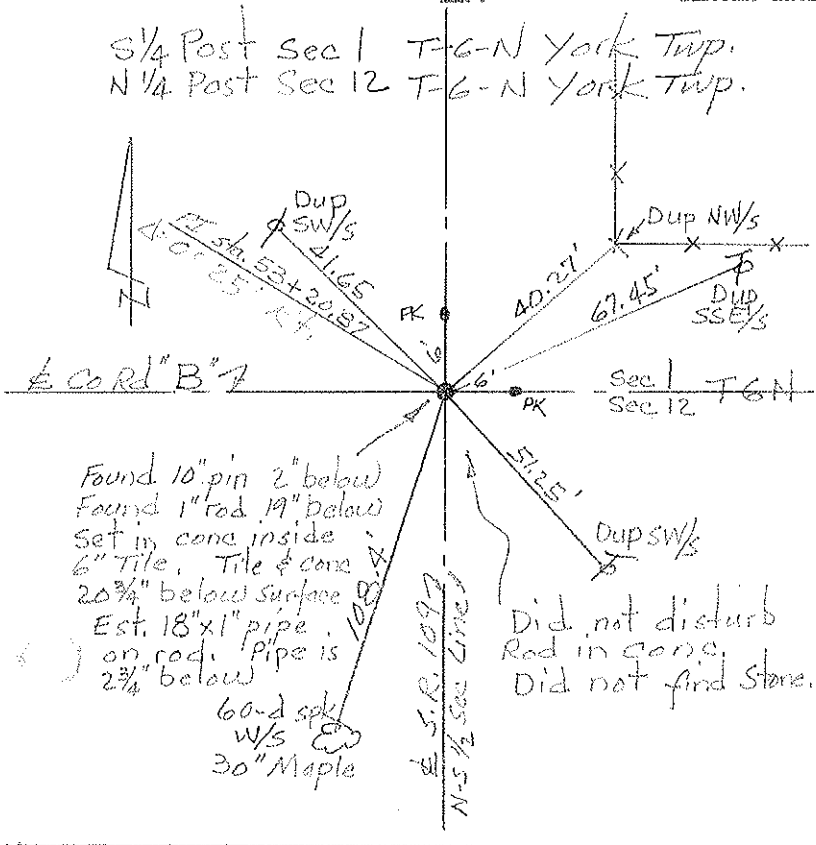 S 1/4 Post Sec 1 T-6-N York Twp.
N 1/4 Post Sec 12 T-6-N York Twp.
N
Dup
SW/s
41.65
PI sta. 53+20.87
Δ 0° 25' Rt.
Dup NW/s
40.27'
67.45'
Dup
SSE/s
PK
6'
6'
PK
℄ Co Rd "B"
Sec 1 T 6 N
Sec 12
51.25'
Dup SW/s
Found 10" pin 2" below
Found 1" rod 19" below
Set in conc inside
6" Tile. Tile & conc
20 3/4" below surface
Est. 18"x1" pipe
on rod. Pipe is
2 3/4" below
108.4'
60-d spk
W/s
30" Maple
℄ S.R. 109
N-S 1/2 Sec Line
Did not disturb
Rod in conc.
Did not find Stone.